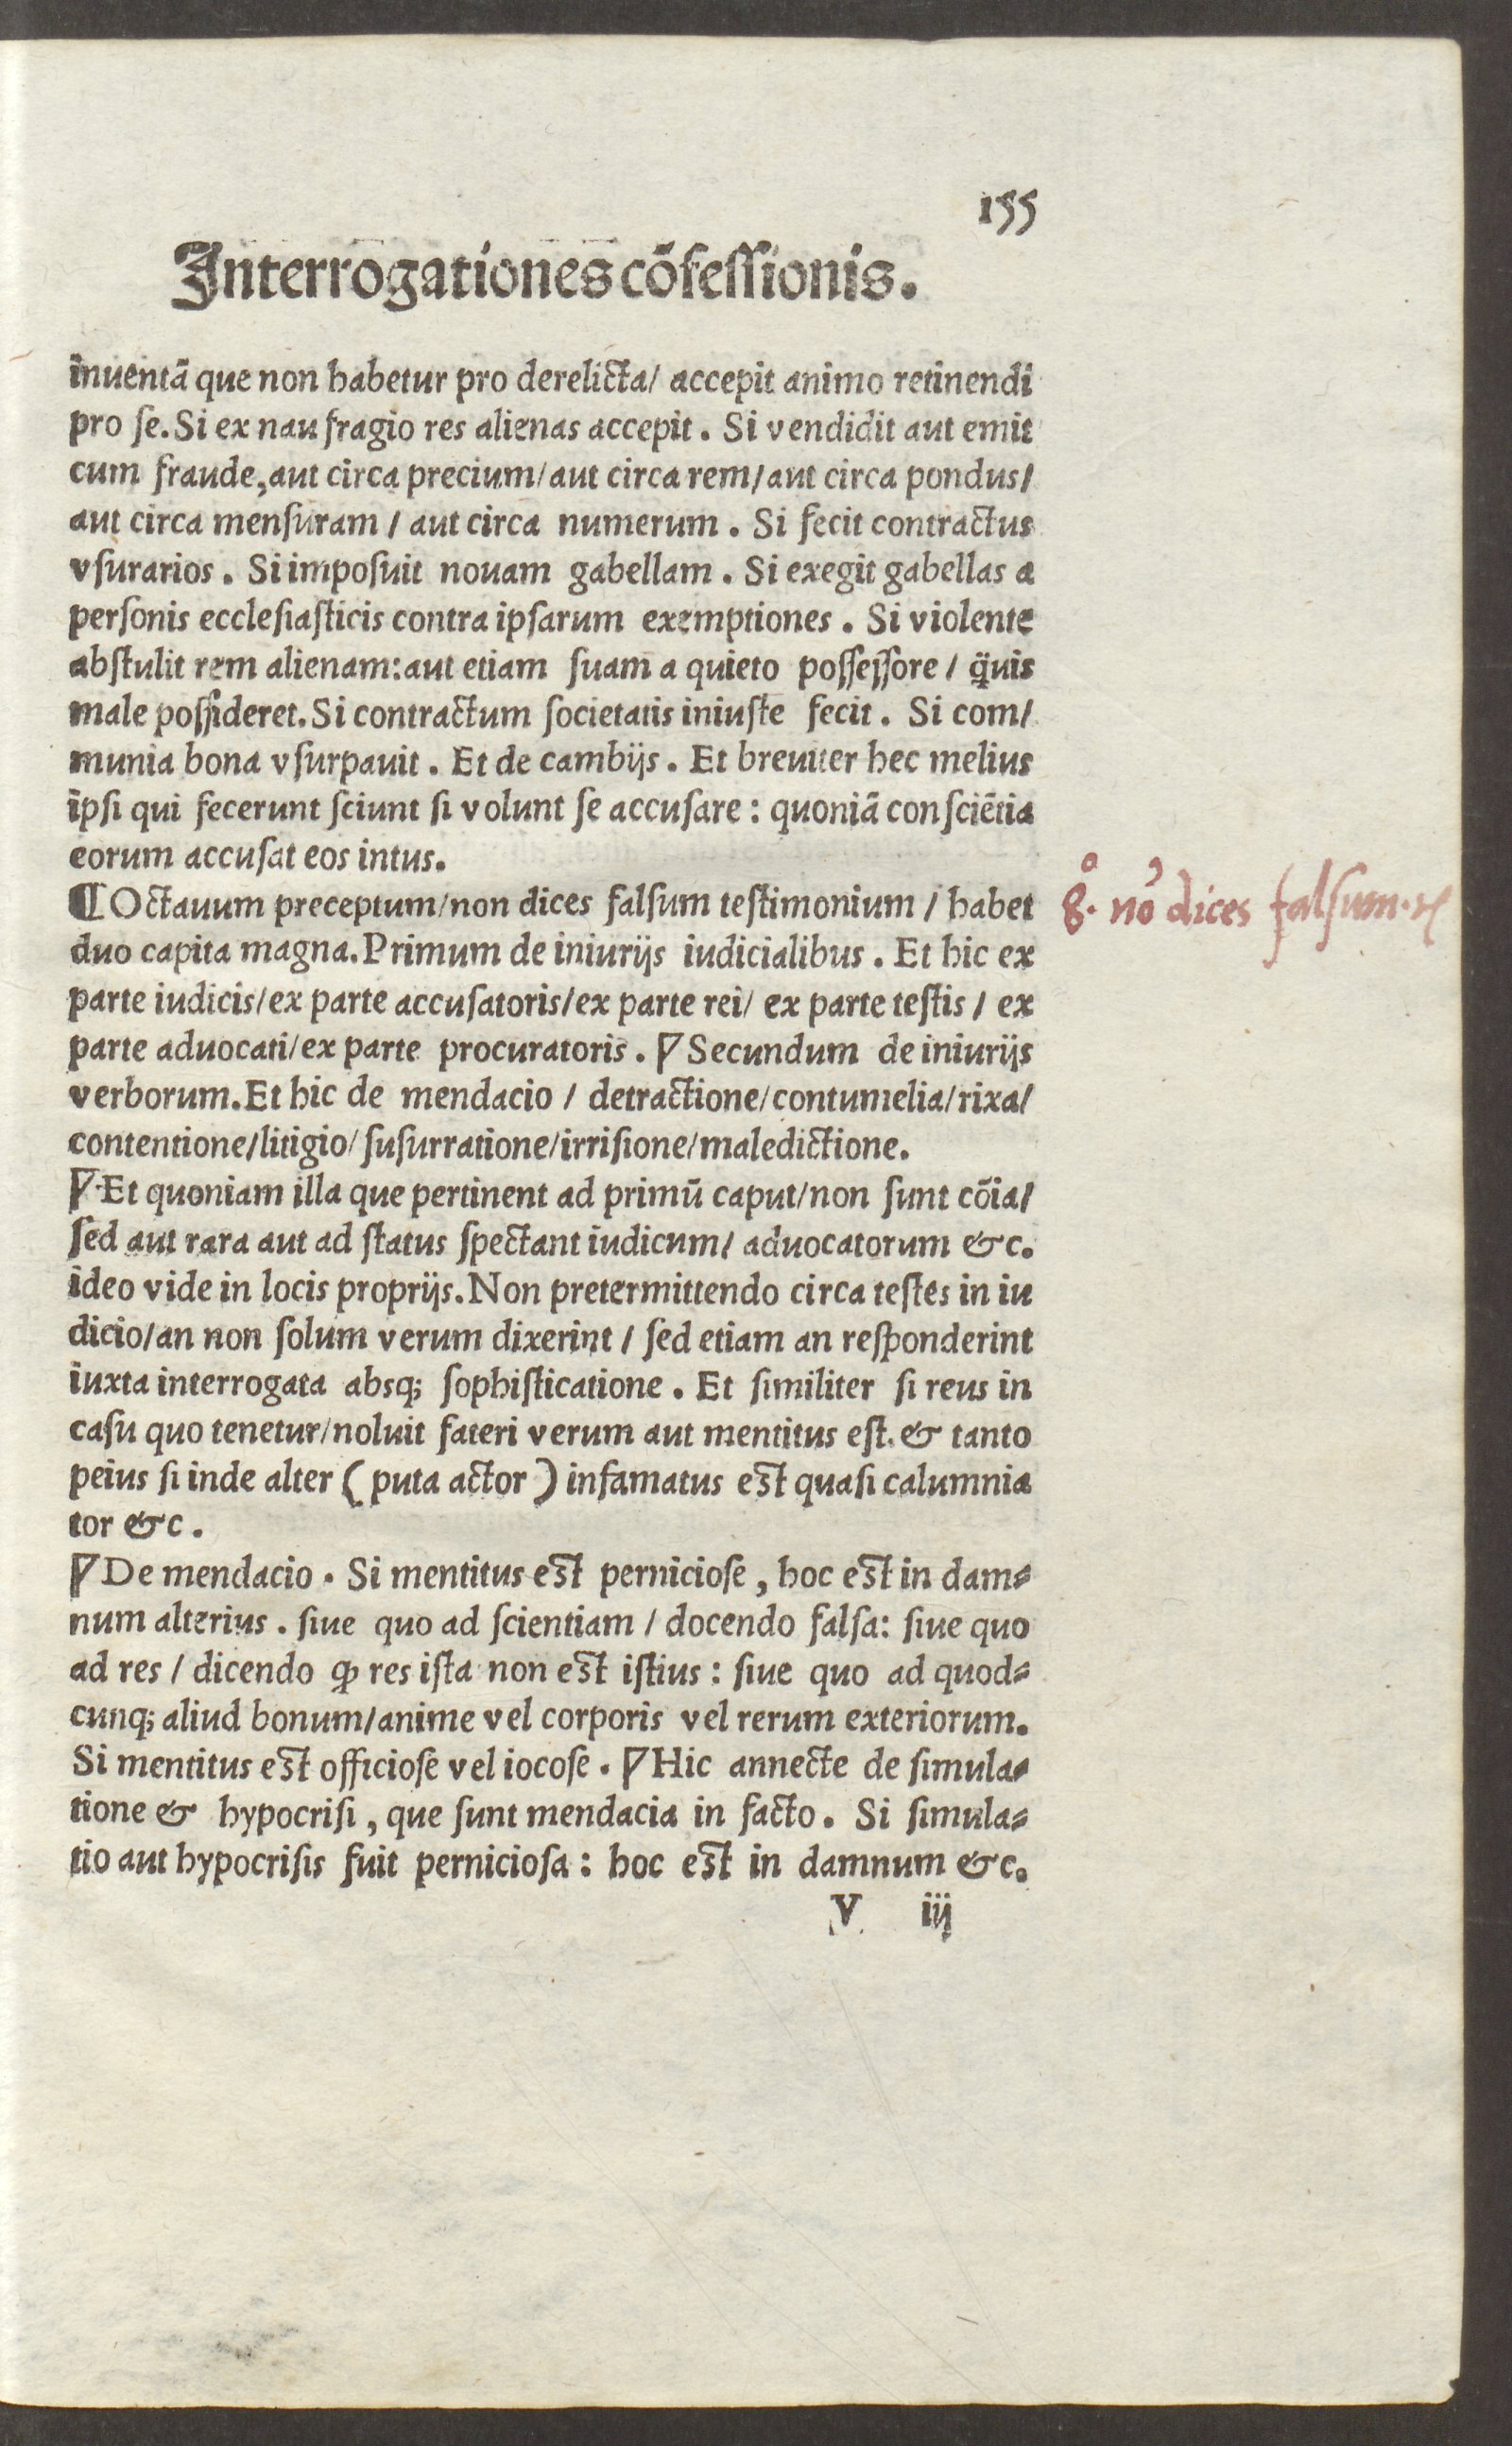 155
Interrogationes cõfessionis.
inuentã que non habetur pro derelicta/ accepit animo retinendi
pro se. Si ex naufragio res alienas accepit. Si vendidit aut emit
cum fraude, aut circa precium/aut circa rem/aut circa pondus/
aut circa mensuram / aut circa numerum. Si fecit contractus
vsurarios. Si imposuit nouam gabellam. Si exegit gabellas a
personis ecclesiasticis contra ipsarum exemptiones. Si violente
abstulit rem alienam: aut etiam suam a quieto possessore / q̃uis
male possideret. Si contractum societatis iniuste fecit. Si com/
munia bona vsurpauit. Et de cambijs. Et breuiter hec melius
ipsi qui fecerunt sciunt si volunt se accusare: quoniã consciẽtia
eorum accusat eos intus.
¶ Octauum preceptum/non dices falsum testimonium / habet
8.º nõ dices falsum.
duo capita magna. Primum de iniurijs iudicialibus. Et hic ex
parte iudicis/ex parte accusatoris/ex parte rei/ ex parte testis / ex
parte aduocati/ex parte procuratoris. ¶ Secundum de iniurijs
verborum. Et hic de mendacio / detractione/contumelia/rixa/
contentione/litigio/ susurratione/irrisione/maledictione.
¶ Et quoniam illa que pertinent ad primũ caput/non sunt cõia/
sed aut rara aut ad status spectant iudicum/ aduocatorum &c.
ideo vide in locis proprijs. Non pretermittendo circa testes in iu
dicio/an non solum verum dixerint / sed etiam an responderint
iuxta interrogata absq; sophisticatione. Et similiter si reus in
casu quo tenetur/noluit fateri verum aut mentitus est. & tanto
peius si inde alter (puta actor) infamatus est quasi calumnia
tor &c.
¶ De mendacio. Si mentitus est perniciose, hoc est in dam-
num alterius. siue quo ad scientiam / docendo falsa: siue quo
ad res / dicendo ꝙ res ista non est istius: siue quo ad quod-
cunq; aliud bonum/anime vel corporis vel rerum exteriorum.
Si mentitus est officiose vel iocose. ¶ Hic annecte de simula-
tione & hypocrisi, que sunt mendacia in facto. Si simula-
tio aut hypocrisis fuit perniciosa: hoc est in damnum &c.
V iij